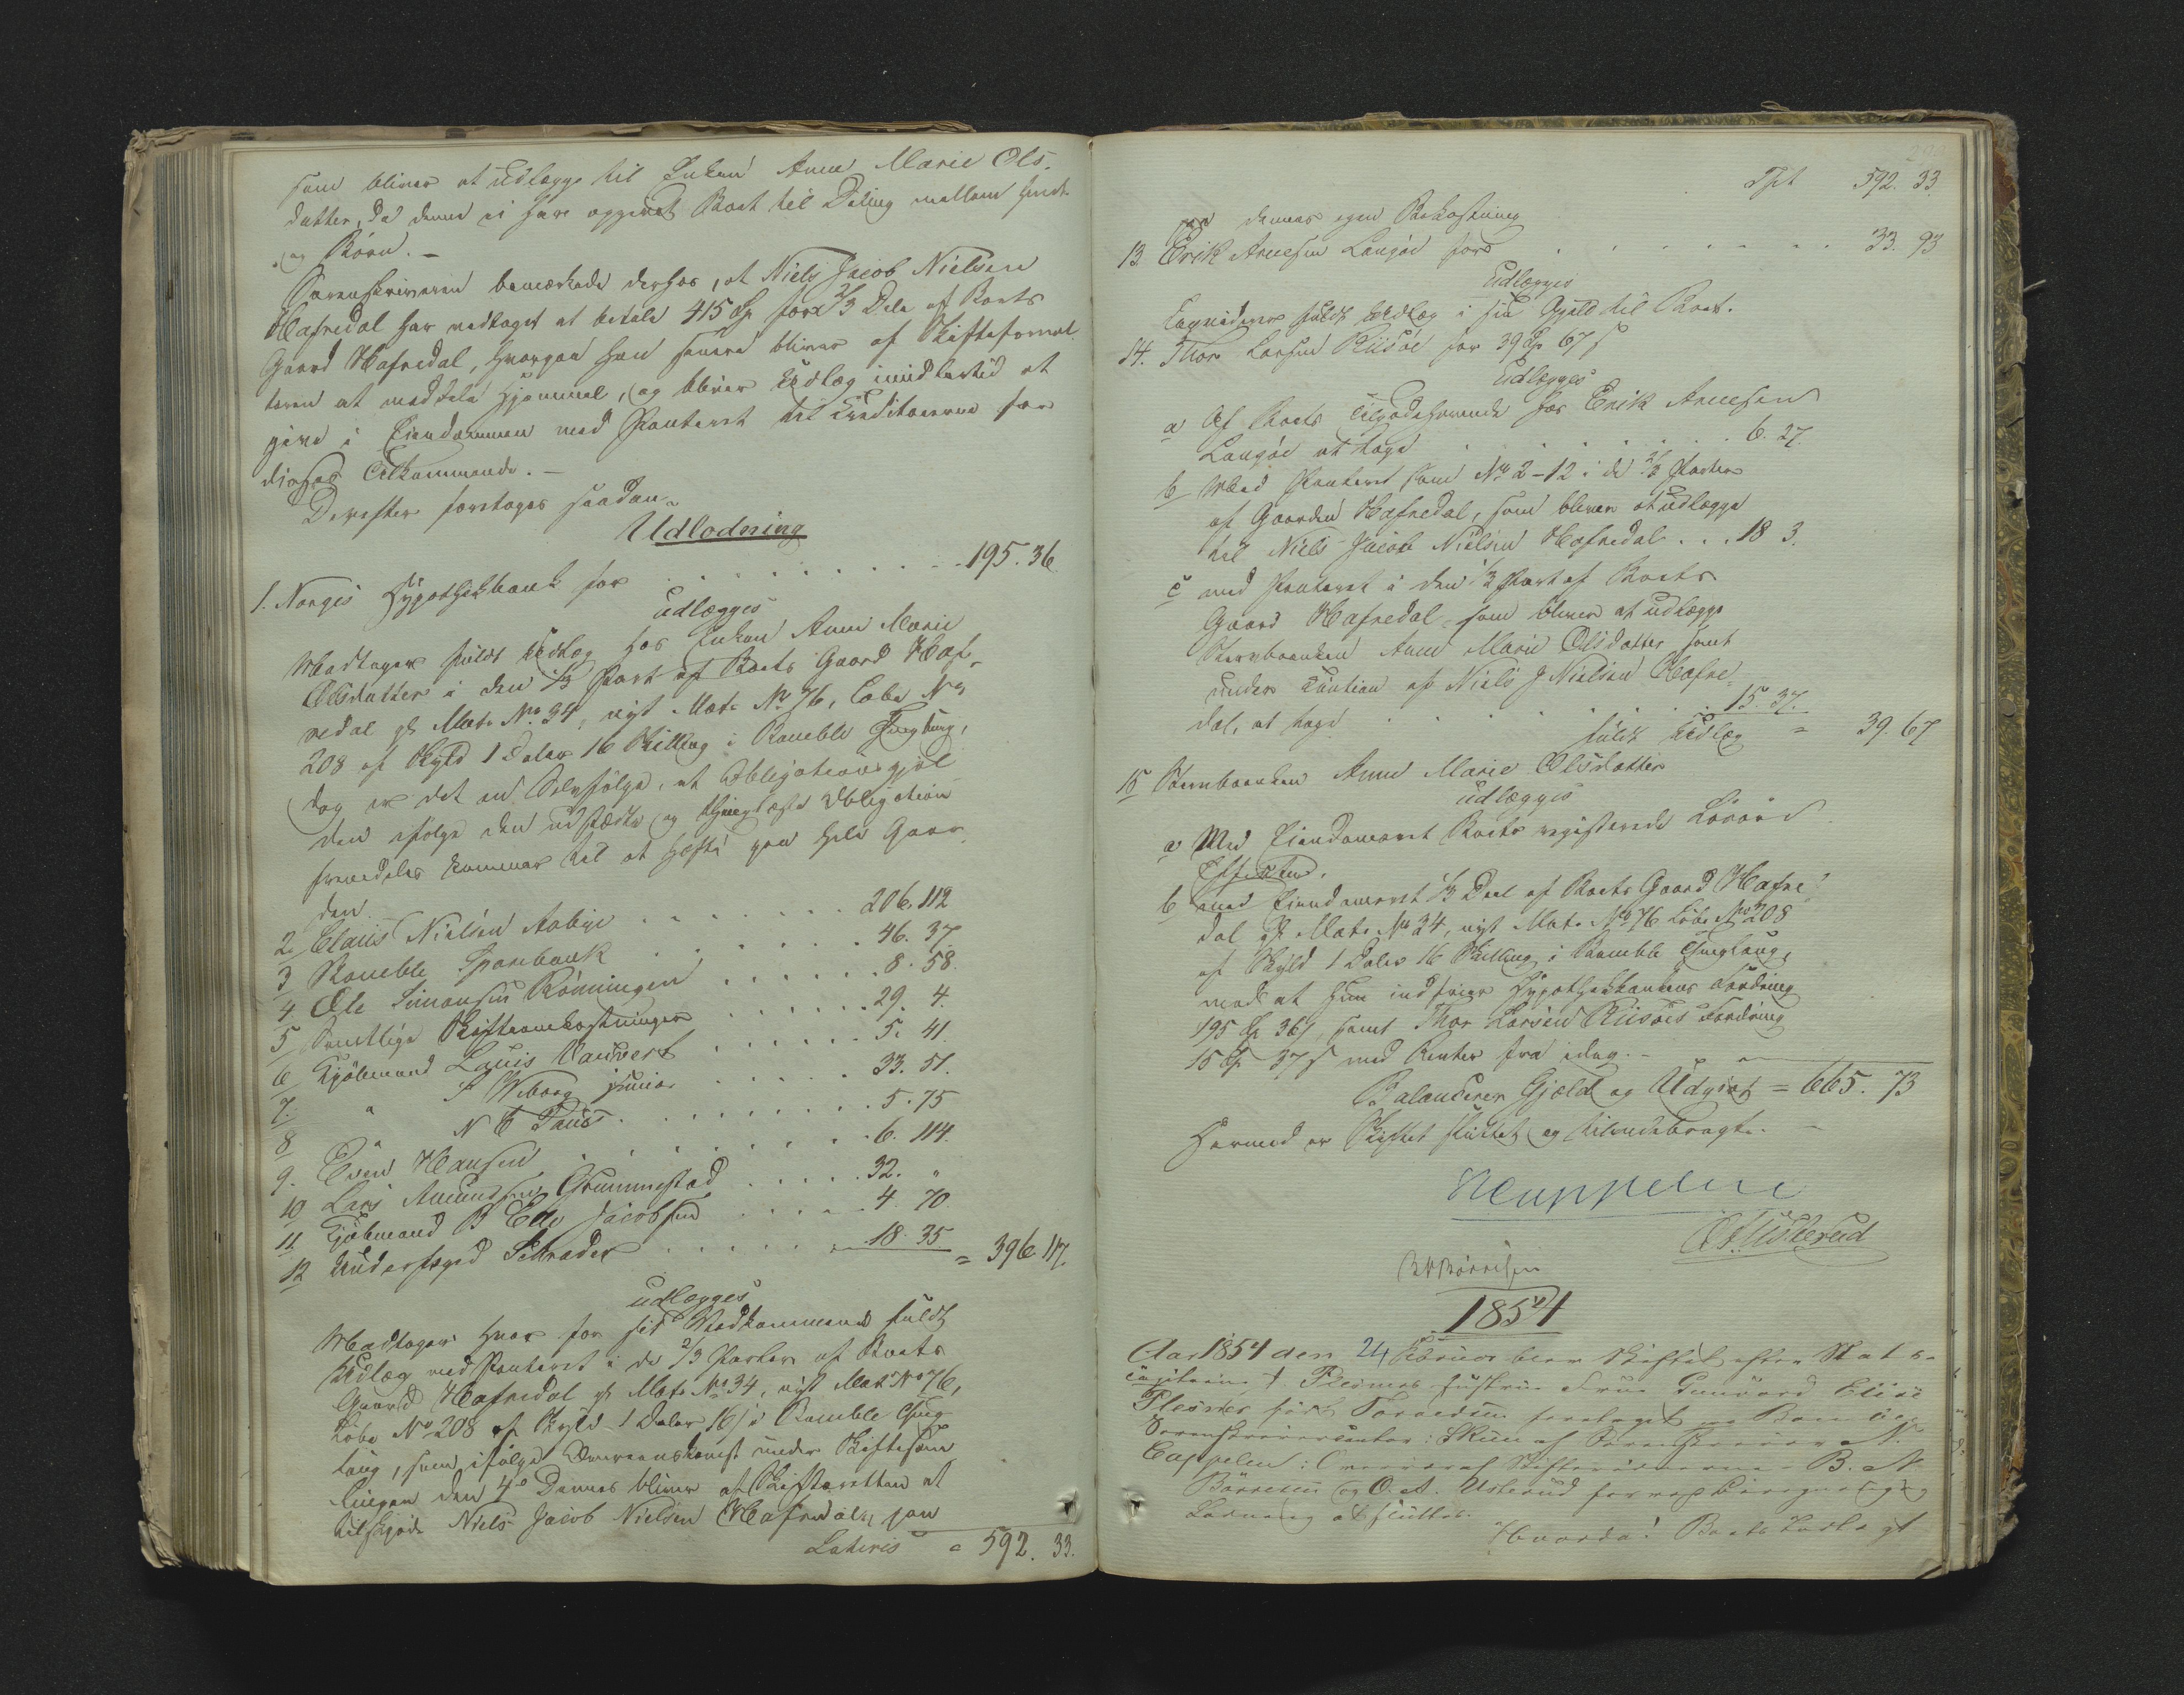 som bliver at udlægge til Enken Anne Marie Ols-
datter, da denne ei har opgivet Boet til Deling mellem sig
og Børn. –
Sorenskriveren bemærkede derhos, at Niels Jacob Nielsen
Hafredal har vedtaget at betale 415 Sp for 2/3 Dele af Boets
Gaard Hafredal, hvorpaa han senere bliver af Skifteforval
teren at meddele Hjemmel, og bliver Udlæg imidlertid at
give i Eiendommen med Panteret til Creditorerne for
disses Tilkommende. –
Derefter foretoges saadan
Udlodning
1. Norges Hypothekbank for . . . . . . . . 195. 36
udlægges
Modtager fuldt Udlæg hos Enken Anne Marie
Olsdatter i den 1/3 Part af Boets Gaard Haf-
redal gl Mat. No 34, nyt Mat. No 76, Løbe No
208 af Skyld 1 Daler 16 Skilling i Bamble Thinglaug,
dog er det en Selvfølge, at Obligationsgjæl
den ifølge den udstædte og thinglæste Obligation
fremdeles kommer til at hefte paa hele Gaar-
den.
2. Claus Nielsen Aabye . . . . . . . 206. 112
3 Bamble Sparebank . . . . . . . 46. 37.
4. Ole Simonsen Rønningen . . . . . . 8. 58.
5 Samtlige Skifteomkostninger . . . . . . 29. 4.
6 Kjøbmand Louis Vauvert . . . . . . 5. 41.
7. " F Wiborg junior . . . . . . 33. 51.
8 N C Paus . . . . . . . 5. 75
9. Even Hansen . . . . . . . 6. 114.
10 Lars Amundsen Grummestad . . . . . 32. "
11. Kjøbmand B Elle Jacobsen . . . . . 4. 70
12 Underfoged Schrader . . . . . . 18. 35 = 396 117.
udlægges
Modtager hver for sit Vedkommende fuldt
Udlæg med Panteret i de 2/3 Parter af Boets
Gaard Hafredal gl Mat. No 34, nyt Mat No 76,
Løbe No 208 af Skyld 1 Daler 16 s i Bamble Thing-
laug, som ifølge Overeenskomst under Skiftesam
lingen den 4de Dennes bliver af Skifteretten at
tilskjøde Niels Jacob Nielsen Hafredal, paa
Lateris = 592. 33.
Tspt 592. 33
dennes egen Bekostning
13. Erik Arnesen Langøe for . . . . . . 33. 93
Udlægges
fuldt Udlæg i sin Gjæld til Boet.
14. Thor Larsen Riisøe for 39 Sp 67 s
Udlægges
a Af Boets Tilgodehavende hos Erik Arnesen
Langøe at tage . . . . . . . 6. 27.
b Med Panteret som No 2–12 i de 2/3 Parter
af Gaarden Hafredal, som bliver at udlægge
til Niels Jacob Nielsen Hafredal . . . 18 3.
c med Panteret i den 1/3 Part af Boets
Gaard Hafredal, som bliver at udlægge
Stervboenken Anne Marie Olsdatter samt
under Caution af Niels J Nielsen Hafre-
dal, at tage . . . . . . 15. 37.
fuldt Udlæg = 39. 67
15 Stervboenken Anne Marie Olsdatter
udlægges
a Med Eiendomsret Boets registerede Løsøre
Effecter.
b med Eiendomsret 1/3 Deel af Boets Gaard Hafre
dal gl Mat. No 34, nyt Mat. No 76 Løbe No 208
af Skyld 1 Daler 16 Skilling i Bamble Thinglaug,
mod at hun indfrier Hypothekbankens Fordring
195 Sp 36 s, samt Thor Larsen Riisøes Fordring
15 Sp 37 s med Renter fra idag. –
Balancerer Gjæld og Udgift = 665. 73
Hermed er Skiftet sluttet og tilendebragt. –
NCappelen
O A Usterud
B N Børresen
1854
Aar 1854 den 24 Februar blev Skiftet efter Skibs-
capitaine J. Plesners Hustrue Frue Gunvord Elise
Plesner født Torredsen foretaget paa Bamble
Sorenskrivercontor: Skeen af Sorenskriver N.
Cappelen: Overværet Skiftevidnerne B. N.
Børresen og O. A. Usterud for
at sluttes.
Hvorda! Boets